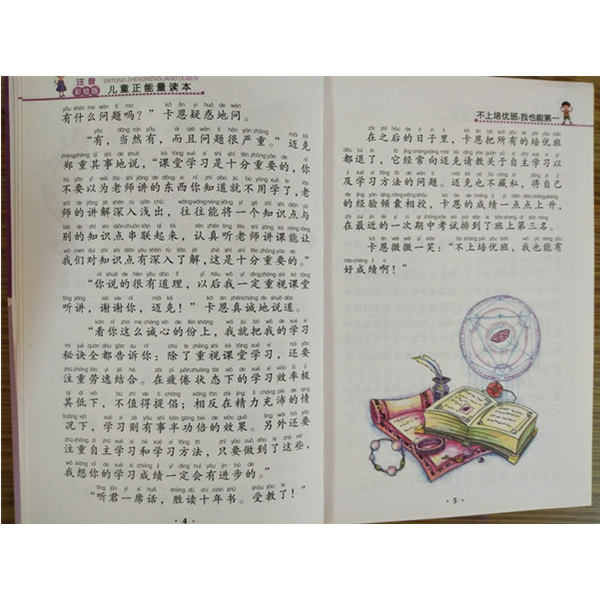 注音
彩绘版
ERTONG ZHENGNENGLIANG DUBEN
儿童正能量读本
有什么问题吗？”卡恩疑惑地问。
“有，当然有，而且问题很严重。”迈克
郑重其事地说，“课堂学习是十分重要的，你
不要以为老师讲的东西你知道就不用学了，老
师的讲解深入浅出，往往能将一个知识点与
别的知识点串联起来，认真听老师讲课能让
我们对知识点有深入了解，这是十分重要的。”
“你说的很有道理，以后我一定重视课堂
听讲，谢谢你，迈克！”卡恩真诚地说道。
“看你这么诚心的份上，我就把我的学习
秘诀全都告诉你：除了重视课堂学习，还要
注重劳逸结合。在疲倦状态下的学习效率极
其低下，不值得提倡；相反在精力充沛的情
况下，学习则有事半功倍的效果。另外还要
注重自主学习和学习方法，只要做到了这些，
我想你的学习成绩一定会有进步的。”
“听君一席话，胜读十年书。受教了！”
·4·
不上培优班，我也能第一
在之后的日子里，卡恩把所有的培优班
都退了，它经常向迈克请教关于自主学习以
及学习方法的问题。迈克也不藏私，将自己
的经验倾囊相授，卡恩的成绩一点点上升，
在最近的一次期中考试排到了班上第三名。
卡恩微微一笑：“不上培优班，我也能有
好成绩啊！”
·5·